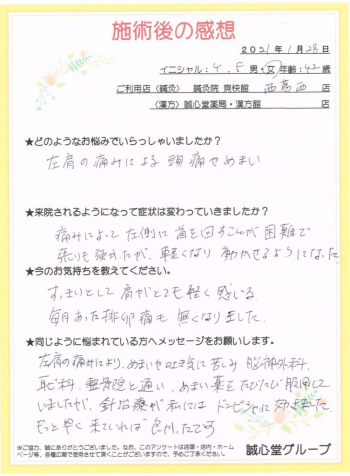 施術後の感想
2021年1月28日
イニシャル：Y.F 男・女 年齢：42歳
ご利用店〈鍼灸〉 鍼灸院 爽快館 西葛西 店
〈漢方〉誠心堂薬局・漢方館 店
★どのようなお悩みでいらっしゃいましたか？
左肩の痛みによる頭痛やめまい
★来院されるようになって症状は変わっていきましたか？
痛みによって左側に首を回すことが困難で
張りも強かったが、軽くなり動かせるようになった
★今のお気持ちを教えてください。
すっきりとして肩がとても軽く感じる
毎月あった排卵痛も無くなりました。
★同じように悩まれている方へメッセージをお願いします。
左肩の痛みにより、めまいや吐き気に苦しみ 脳神経外科、
耳鼻科、整骨院と通い、めまい薬をたびたび服用して
いましたが、針治療が私にはドンピシャに効きました。
もっと早く来ていれば良かったです
※ご協力、誠にありがとうございました。なお、このアンケートは店頭・店内・ホーム
ページ等、各種広報で使用させて頂くことがございますので、予めご了承ください。
誠心堂グループ